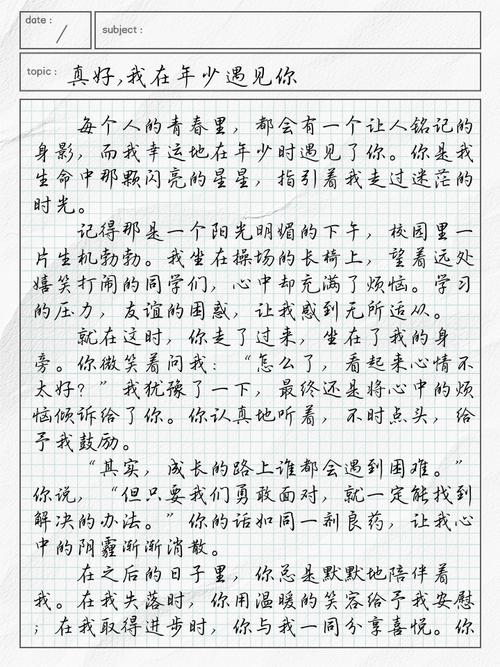 date :
subject :
topic : 真好,我在年少遇见你
每个人的青春里，都会有一个让人铭记的
身影，而我幸运地在年少时遇见了你。你是我
生命中那颗闪亮的星星，指引着我走过迷茫的
时光。
记得那是一个阳光明媚的下午，校园里一
片生机勃勃。我坐在操场的长椅上，望着远处
嬉笑打闹的同学们，心中却充满了烦恼。学习
的压力，友谊的困惑，让我感到无所适从。
就在这时，你走了过来，坐在了我的身
旁。你微笑着问我：“怎么了，看起来心情不
太好？”我犹豫了一下，最终还是将心中的烦
恼倾诉给了你。你认真地听着，不时点头，给
予我鼓励。
“其实，成长的路上谁都会遇到困难。”
你说，“但只要我们勇敢面对，就一定能找到
解决的办法。”你的话如同一剂良药，让我心
中的阴霾渐渐消散。
在之后的日子里，你总是默默地陪伴着
我。在我失落时，你用温暖的笑容给予我安慰
；在我取得进步时，你与我一同分享喜悦。你